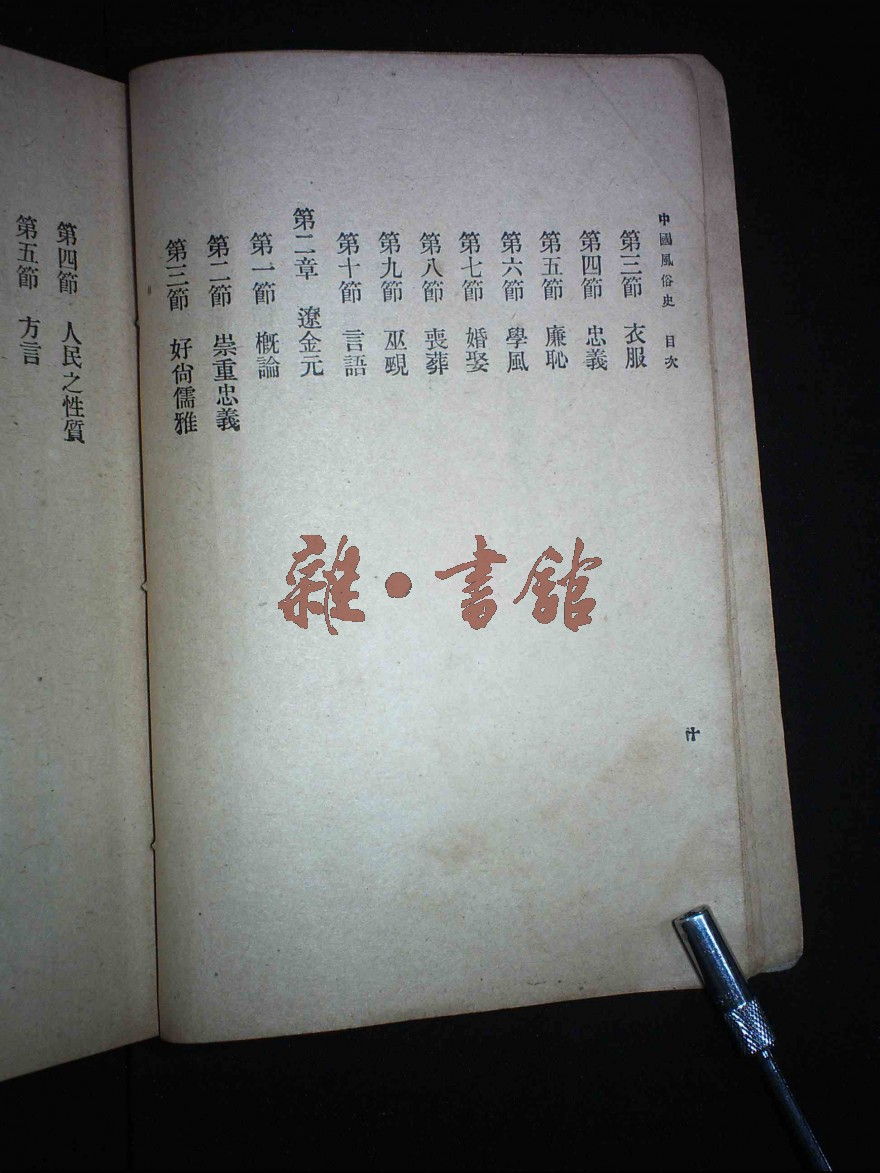 中國風俗史 目次
第三節 衣服
第四節 忠義
第五節 廉恥
第六節 學風
第七節 婚娶
第八節 喪葬
第九節 巫覡
第十節 言語
第二章 遼金元
第一節 概論
第二節 崇重忠義
第三節 好尙儒雅
第四節 人民之性質
第五節 方言
雜·書館